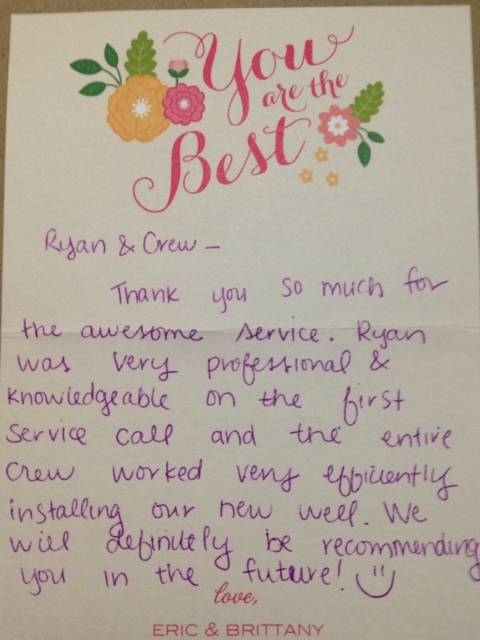 You
are the
Best
Ryan & Crew -
Thank you so much for
the awesome service. Ryan
was very professional &
knowledgeable on the first
service call and the entire
crew worked very efficiently
installing our new well. We
will definitely be recommending
you in the future! :)
love,
ERIC & BRITTANY